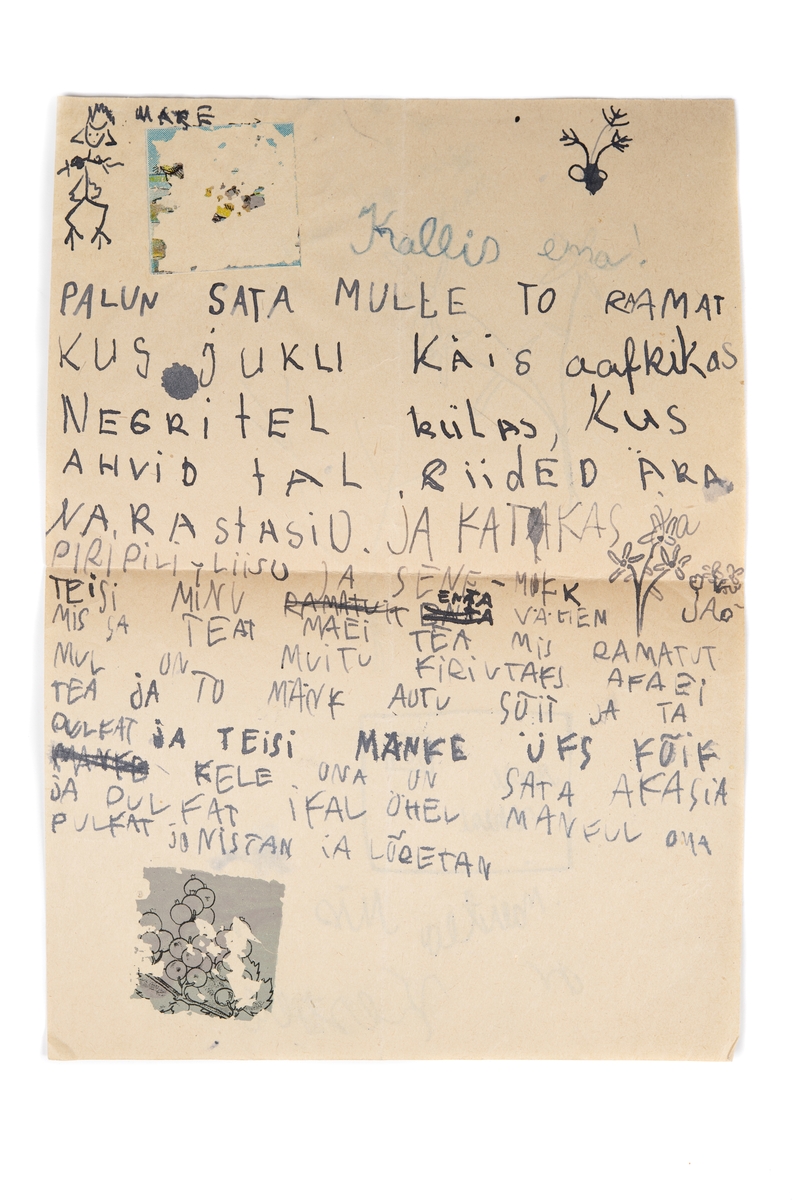 MARE
Kallis ema!
PALUN SATA MULLE TO RAAMAT
KUS JUKLI KÄIS aafkikas
NEGRITEL külas, KUS
AHVID tAL RiidED ÄRA
NARAStASID. JA KATAKAS JÄÄ
PIRIPILI-LIISU JA SENE-MIKK
TEISI MINU ENTA VÄHEM JAO
MIS SA TEAT MAEI TEA MIS RAMATUT
MUL ON MUITU KIRIUTAKS AFAEI
TEA JA TO MÄNK AUTU SÕIT JA TA
PULKAT JA TEISI MÄNKE ÜKS KÕIK
KELE OMA ON SATA AKASIA
JA PULKAT IKAL ÕHEL MÄNKUL OMA
PULKAT JONISTAN JA LÕRETAN